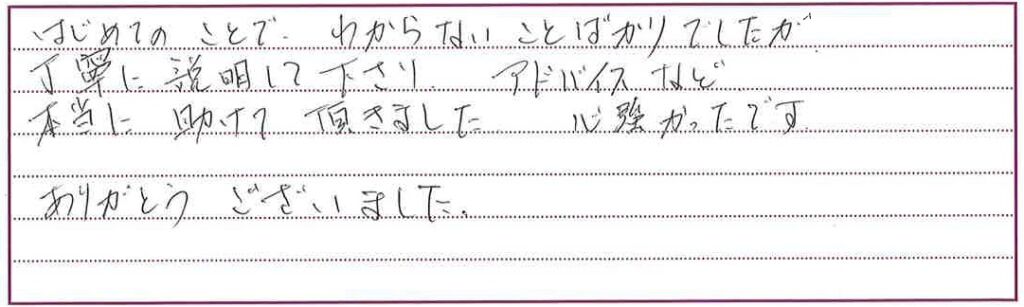 はじめてのことで、わからないことばかりでしたが、
丁寧に説明して下さり、アドバイスなど
本当に助けて頂きました 心強かったです
ありがとうございました。